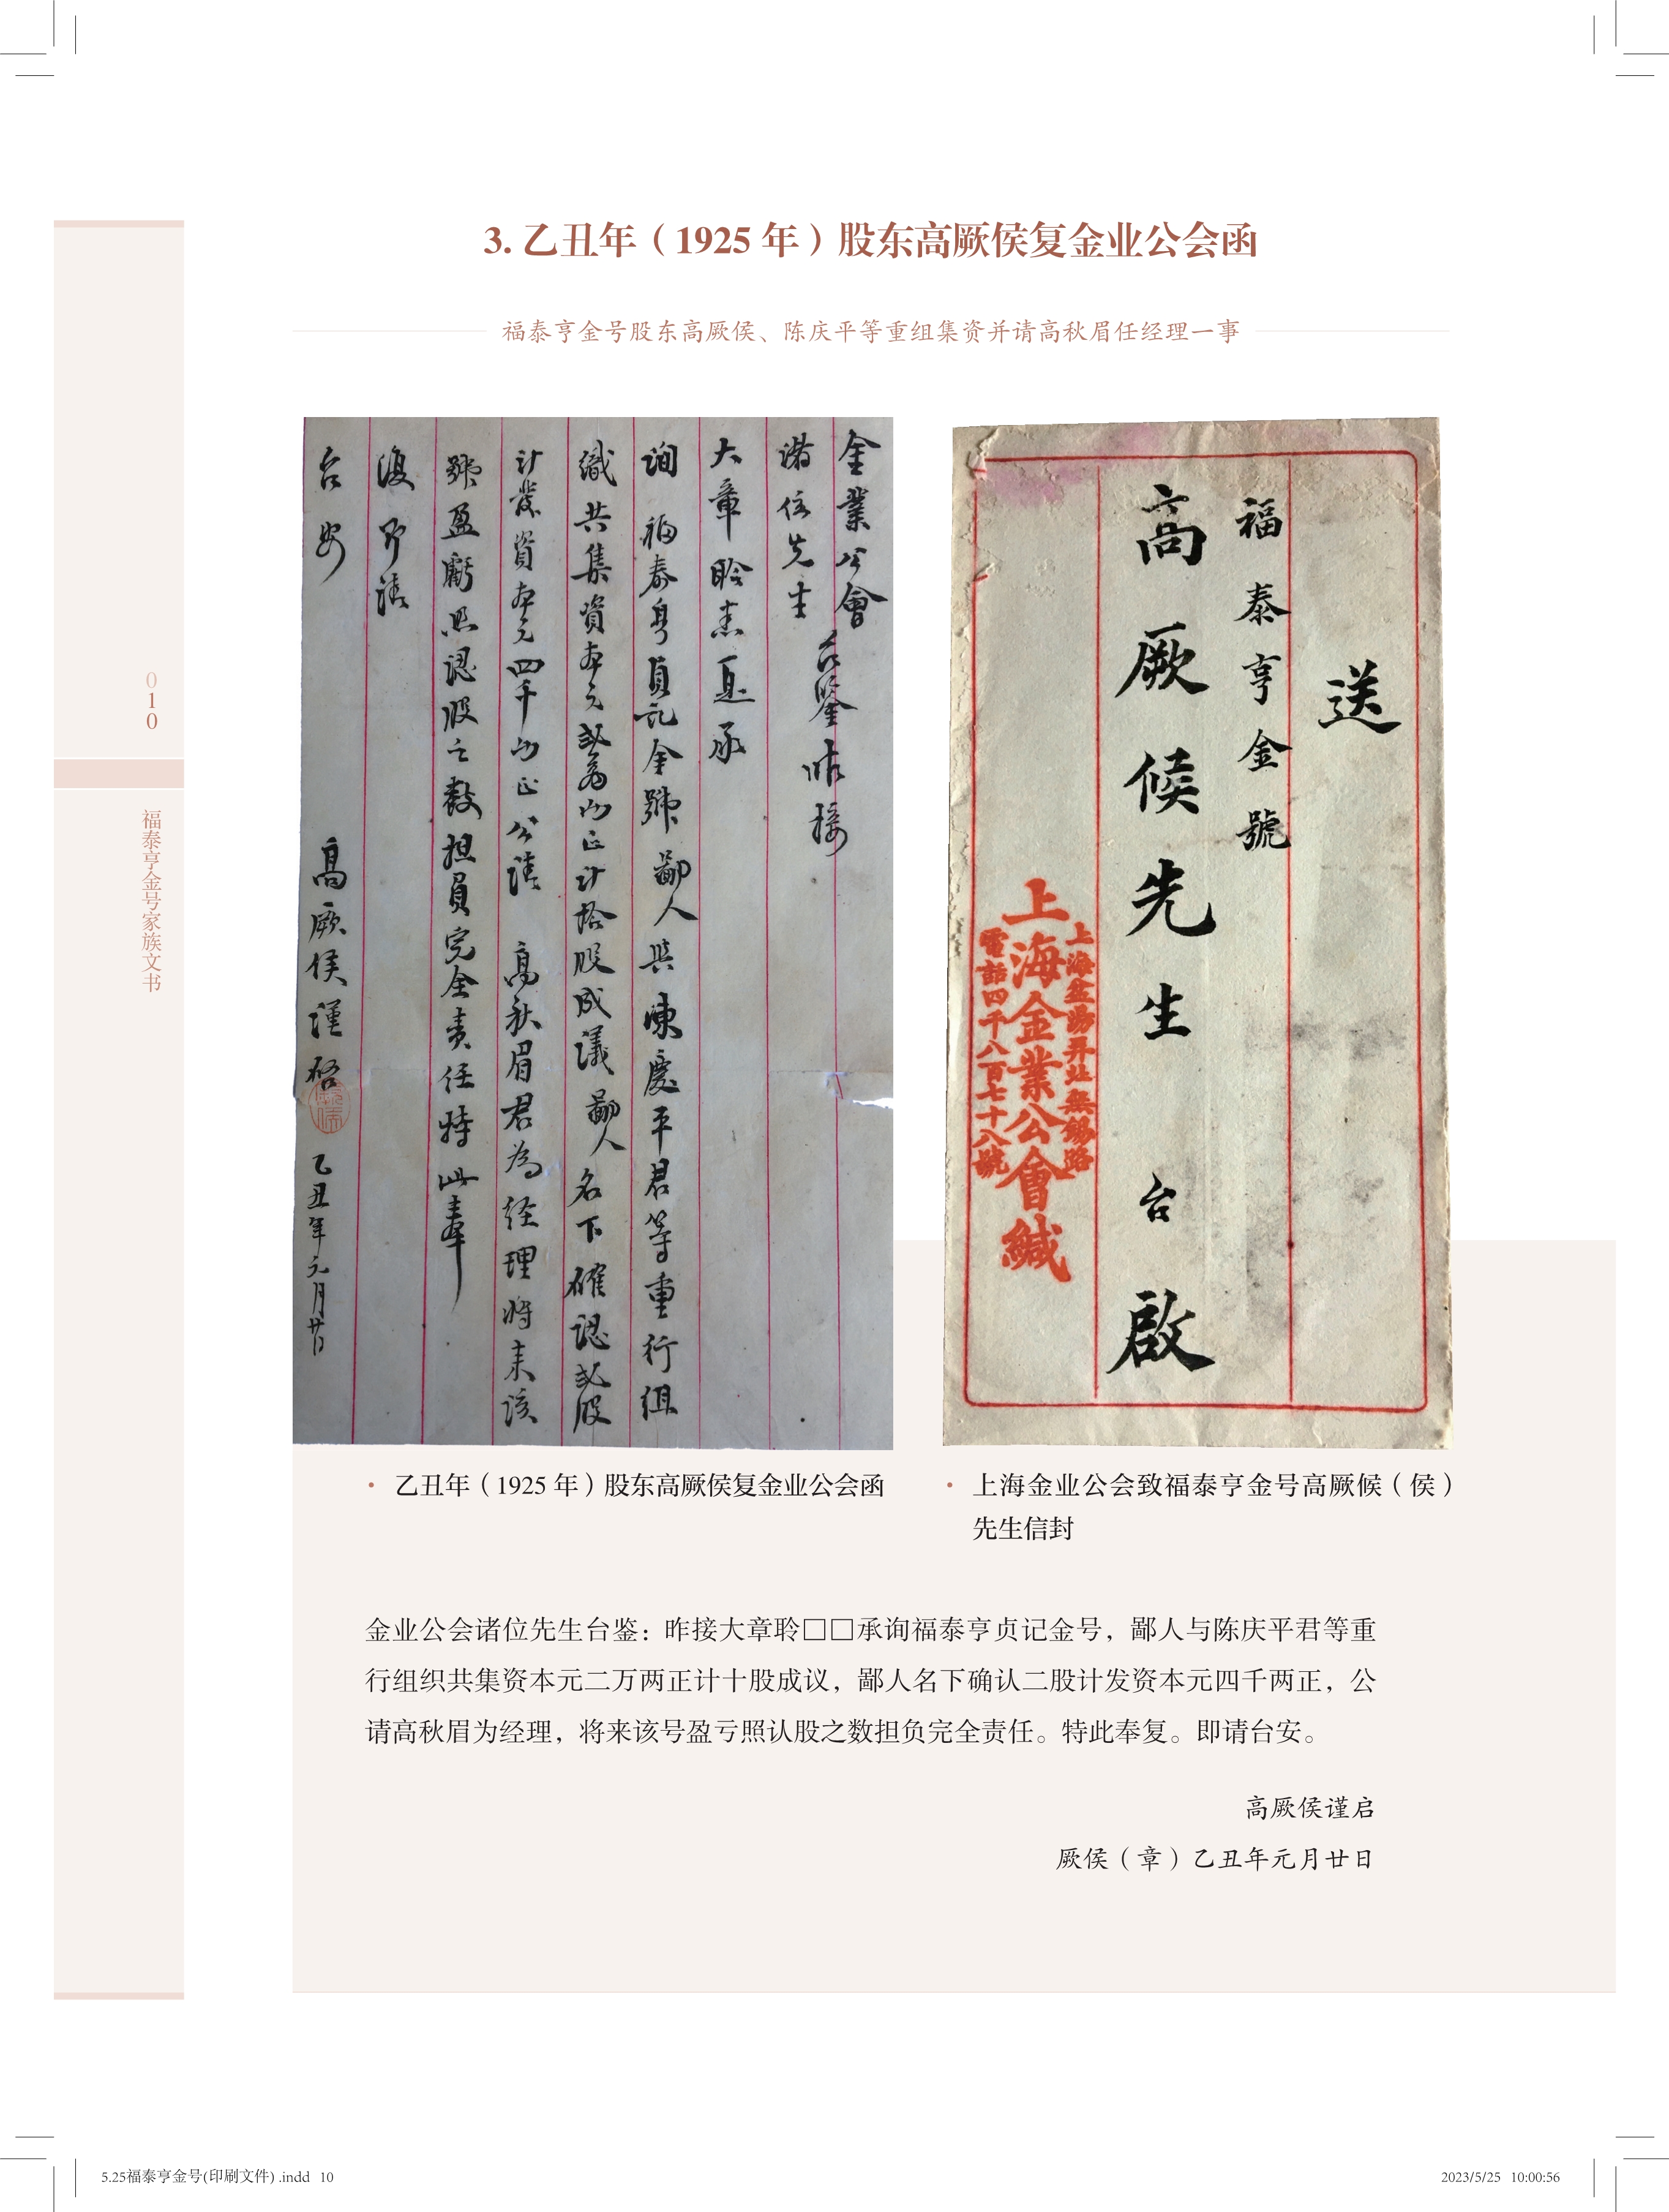 3. 乙丑年（1925 年）股东高厥侯复金业公会函
福泰亨金号股东高厥侯、陈庆平等重组集资并请高秋眉任经理一事
金業公會
諸位先生
台鑒昨接
大章聆悉
承
詢 福泰亨貞記金號 鄙人與陳慶平君等重行組
織共集資本元弍萬両正計拾股成議鄙人名下確認弍股
計發資本元四千両正公請 高秋眉君為經理將來該
號盈虧照認股之數担負完全責任特此奉
復即請
台安
高厥侯謹啓
乙丑年元月廿日
送
福泰亨金號
高厥候先生 台啟
上海盆湯弄北無錫路
上海金業公會緘
電話四千八百七十八號
010
福泰亨金号家族文书
• 乙丑年（1925 年）股东高厥侯复金业公会函
• 上海金业公会致福泰亨金号高厥候（侯）
先生信封
金业公会诸位先生台鉴：昨接大章聆□□承询福泰亨贞记金号，鄙人与陈庆平君等重
行组织共集资本元二万两正计十股成议，鄙人名下确认二股计发资本元四千两正，公
请高秋眉为经理，将来该号盈亏照认股之数担负完全责任。特此奉复。即请台安。
高厥侯谨启
厥侯（章）乙丑年元月廿日
5.25福泰亨金号(印刷文件) .indd 10
2023/5/25 10:00:56